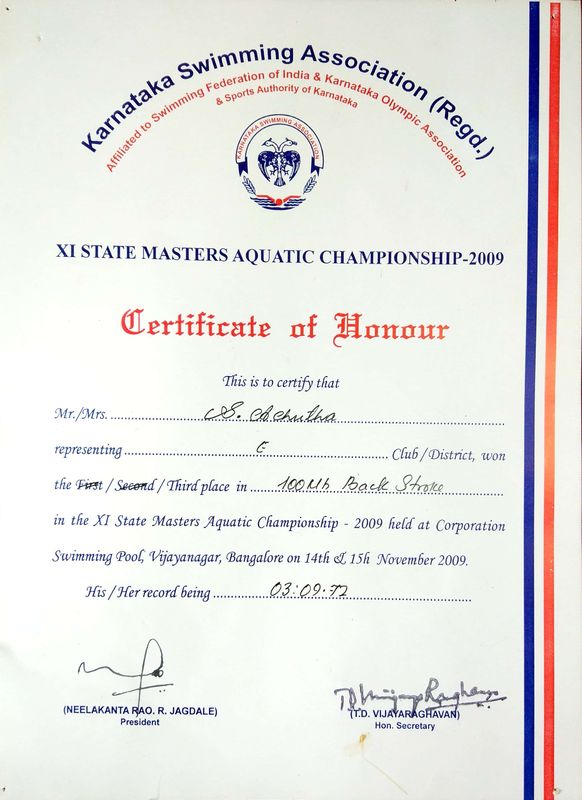 Karnataka Swimming Association (Regd.)
Affiliated to Swimming Federation of India & Karnataka Olympic Association
& Sports Authority of Karnataka
KARNATAKA SWIMMING ASSOCIATION
XI STATE MASTERS AQUATIC CHAMPIONSHIP-2009
Certificate of Honour
This is to certify that
Mr./Mrs. S. Achutha
representing E Club / District, won
the First / Second / Third place in 100 Mts Back Stroke
in the XI State Masters Aquatic Championship - 2009 held at Corporation
Swimming Pool, Vijayanagar, Bangalore on 14th & 15h November 2009.
His / Her record being 03:09.72
(NEELAKANTA RAO. R. JAGDALE)
President
T.D. Vijaya Raghavan
(T.D. VIJAYARAGHAVAN)
Hon. Secretary